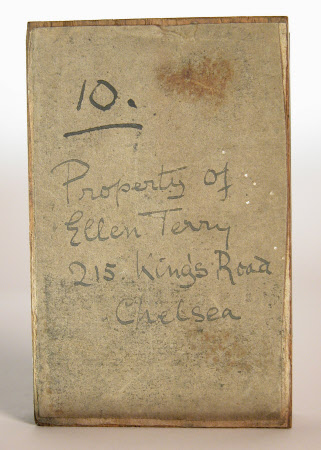 10.
Property of
Ellen Terry
215. King's Road
Chelsea